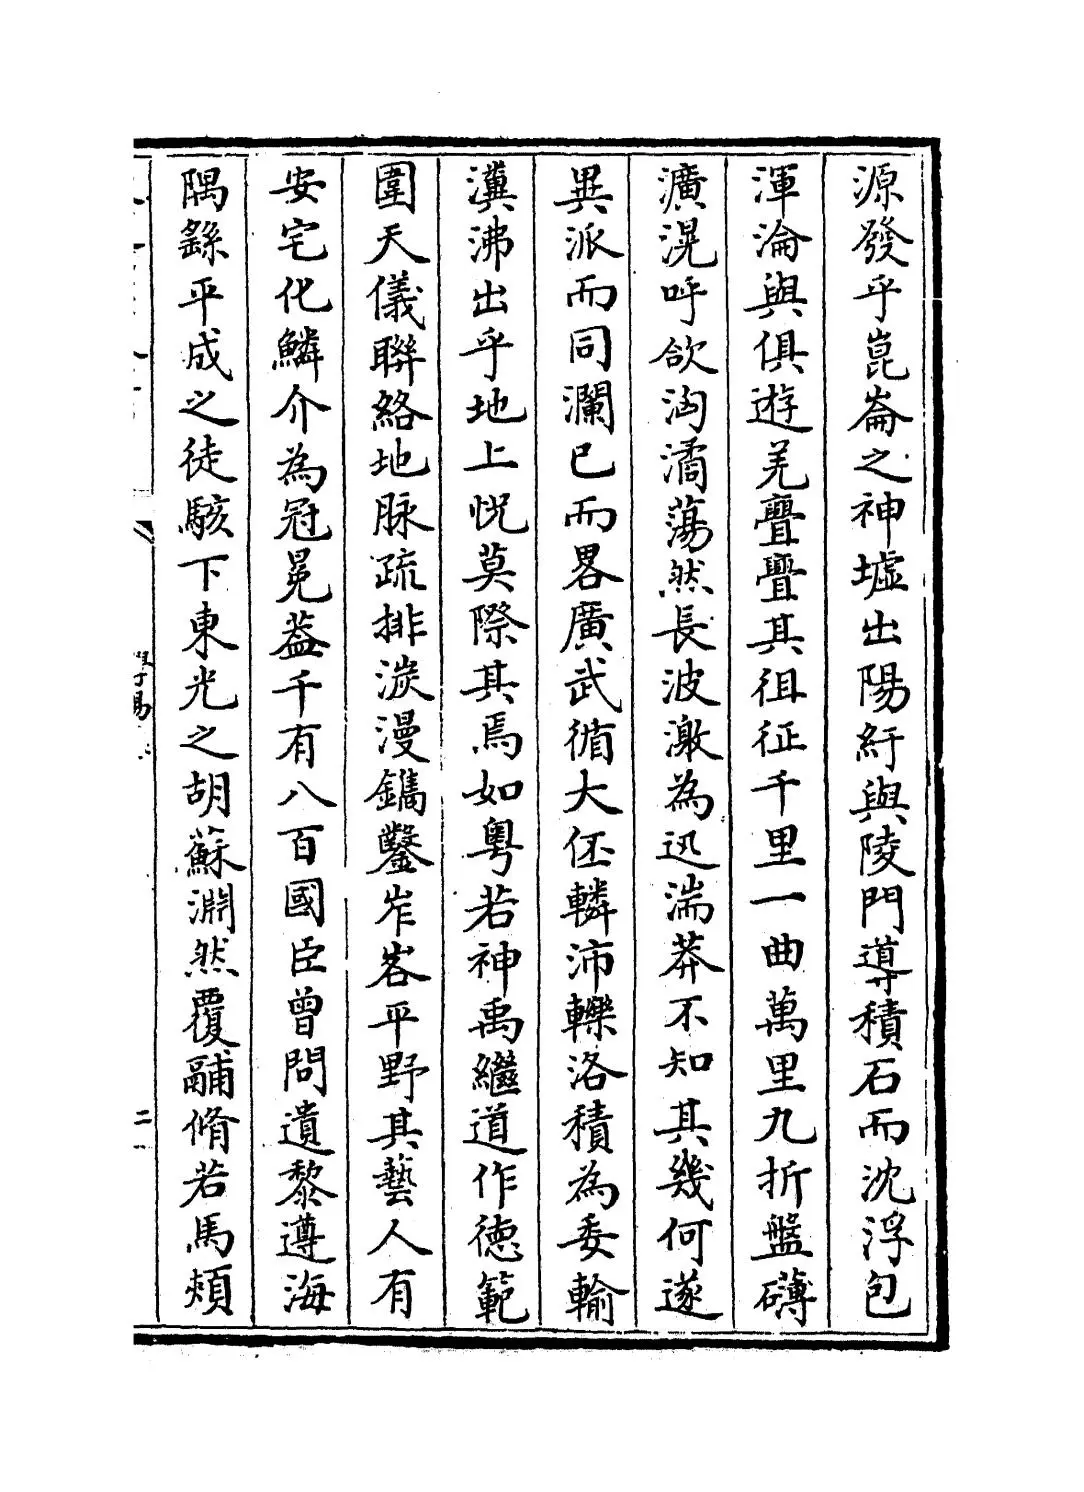 源發乎崑崙之神墟出陽紆與陵門導積石而沈浮包
渾淪與俱遊羌亹亹其徂征千里一曲萬里九折盤礴
瀇滉呼欱渹潏蕩然長波激為迅湍莽不知其幾何遂
異派而同瀾已而畧廣武循大伾轔沛轢洛積為委輸
瀵沸出乎地上怳莫際其焉如粤若神禹繼道作徳範
圍天儀聯絡地脉疏排淡漫鐫鑿岝峉平野其藝人有
安宅化鱗介為冠冕葢千有八百國臣曾問遺黎遵海
隅繇平成之徒駭下東光之胡蘇淵然覆鬴脩若馬頰